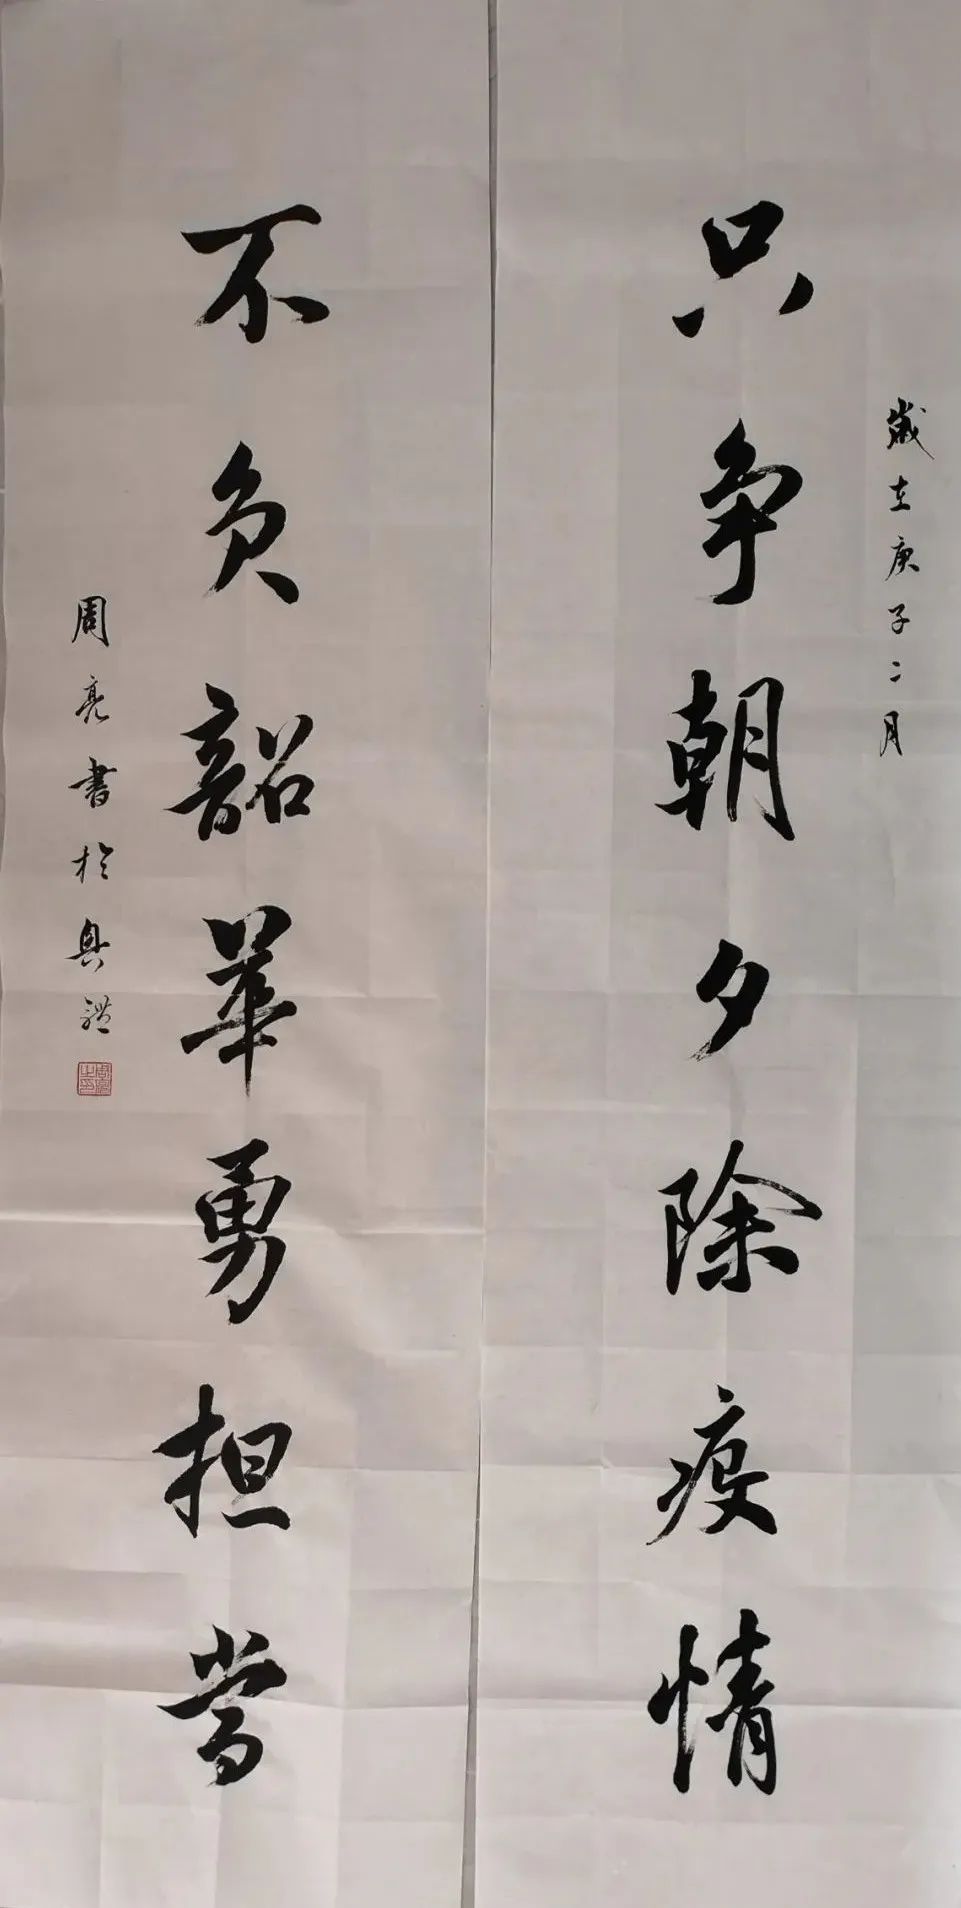 歲在庚子二月
只争朝夕除疫情
不负韶華勇担當
周亮書於興禮
周亮之印